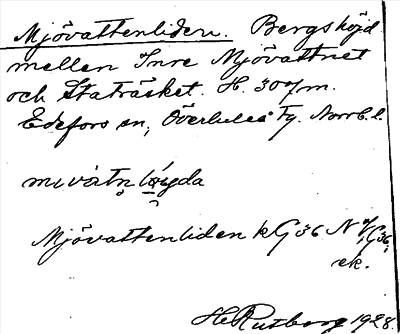 Mjövattenliden. Bergshöjd
mellen Inre Mjövattnet
och Staträsket. H. 307 m.
Edefors sn, Överluleå Tg. Norrb. l.
Mjövattenliden k G36 N
ek.
H. Rutberg 1928.